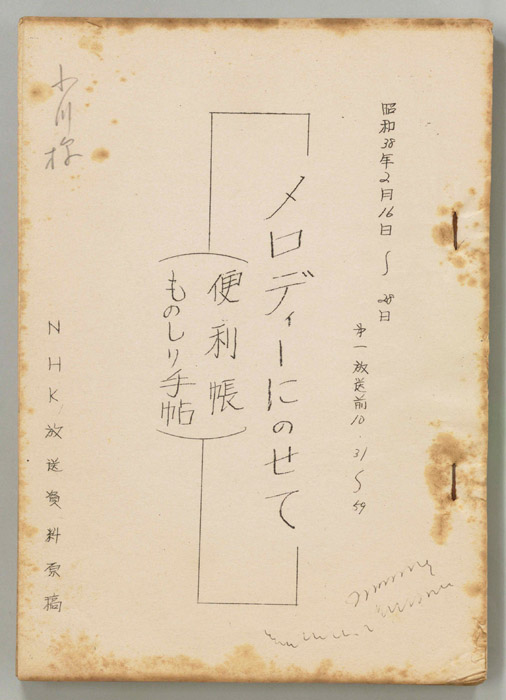 昭和38年2月16日〜28日
第一放送前10.31〜59
メロディーにのせて
(便利帳
ものしり手帖)
NHK放送資料原稿
小川様